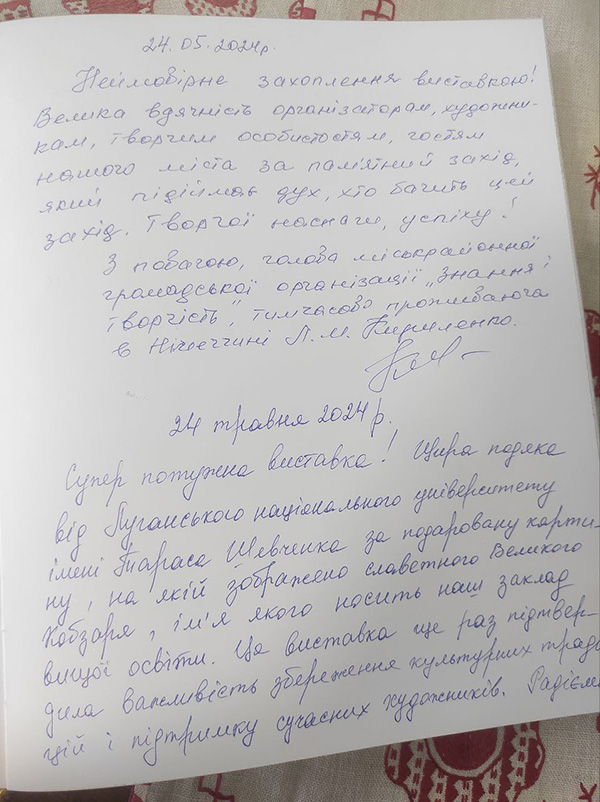 24.05.2024р.
Неймовірне захоплення виставкою!
Велика вдячність організаторам, художни-
кам, творчим особистостям, гостям
нашого міста за пам'ятний захід,
який підіймає дух, хто бачить цей
захід. Творчої наснаги, успіху!
З повагою, голова міськрайонної
громадської організації „Знання і
творчість", тимчасово проживаюча
в Німеччині Л.М. Кириленко.
24 травня 2024 р.
Супер потужна виставка! Щира подяка
від Луганського національного університету
імені Тараса Шевченка за подаровану карти-
ну, на якій зображено славетного Великого
Кобзаря, ім'я якого носить наш заклад
вищої освіти. Ця виставка ще раз підтвер-
дила важливість збереження культурних тради-
цій і підтримку сучасних художників. Радієм